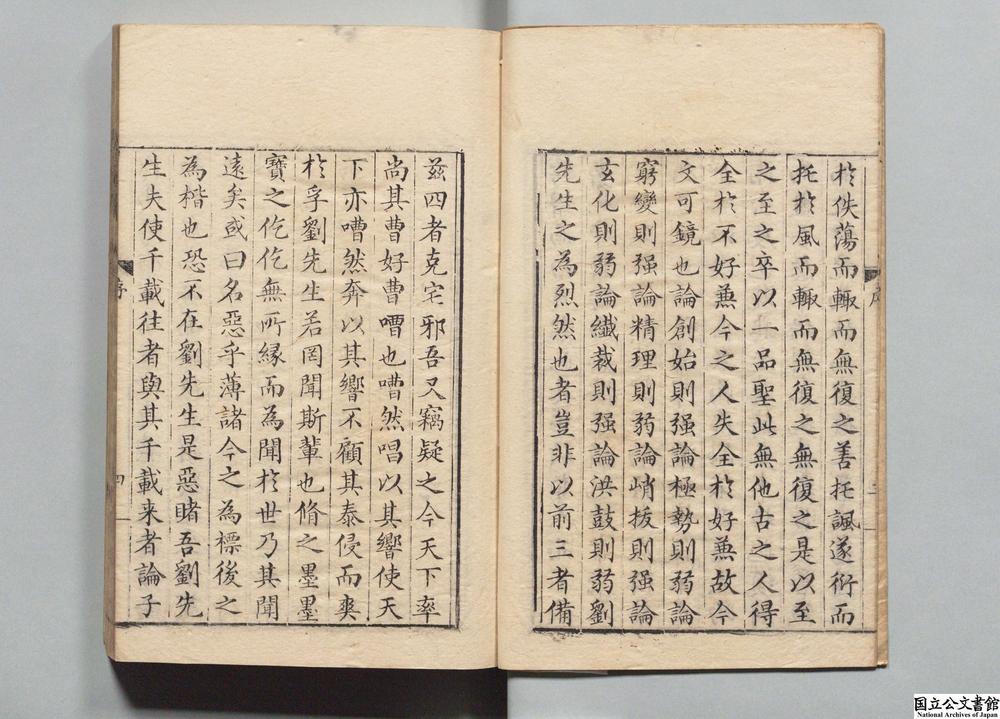 於佚蕩而輙而無復之善托諷遂衍而
托於風而輙而無復之無復之是以至
之至之卒以一品聖此無他古之人得
全於不好兼今之人失全於好兼故今
文可鏡也論創始則强論極勢則弱論
窮變則强論精理則弱論峭拔則强論
玄化則弱論纎裁則强論洪鼓則弱劉
先生之為烈然也者豈非以前三者備
序
三
兹四者克宅邪吾又竊疑之今天下率
尚其曹好曹嘈也嘈然唱以其響使天
下亦嘈然奔以其響不顧其泰侵而爽
於孚劉先生若罔聞斯輩也脩之墨墨
寶之仡仡無所縁而為聞於世乃其聞
逺矣或曰名惡乎薄諸今之為標後之
為楷也恐不在劉先生是惡睹吾劉先
生夫使千載往者與其千載来者論子
序
四
国立公文書館
National Archives of Japan